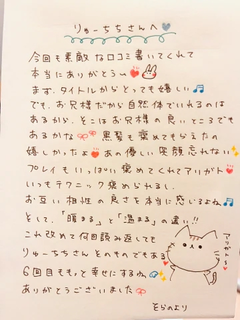 りゅーちちさんへ
今回も素敵な口コミ書いてくれて
本当にありがとう
まず、タイトルからとっても嬉しい
でも、お兄様だから自然体でいれるのは
あるから、そこはお兄様の良いところでも
あるかな 黒髪も褒めてもらえたの
嬉しかったよ あの優しい笑顔忘れない
プレイもいっぱい褒めてくれてアリガト
いつもテクニック褒められるし、
お互い相性の良さを本当に感じるよね
そして、「暖まる」と「温まる」の違い!!
これ改めて何回読み返しても
りゅーちちさんそのものである
6回目ももって幸せにするね
ありがとうございました
アリガトー
そらのより